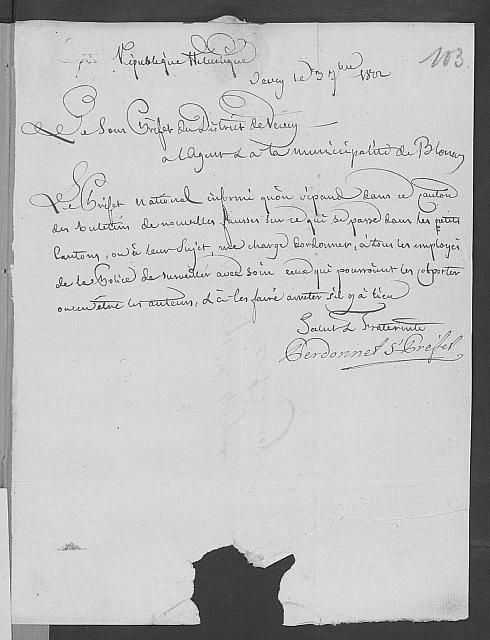 103.
République Helvétique
Vevey le 3 7bre 1802
Le Sous Préfet du District de Vevey
à l'Agent & à la municipalité de Blonay
Le Préfet national informé qu'on répand dans ce Canton
des buletins de nouvelles fausses sur ce qui se passe dans les petits
Cantons, ou à leur sujet, me charge d'ordonner, à tous les employés
de la Police de surveiller avec soin ceux qui pourroient les colporter
ou en être les auteurs, & à les faire arreter s'il y a lieu
Salut & Fraternité
Perdonnet S. Préfet